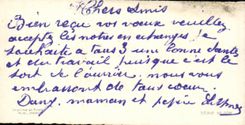 Chers Amis
Bien reçu vos voeux veuillez
acceptez les notres en echanges je
souhaite a tous 3 une bonne santé
et du travail puisque c'est le
sort de l'ouvrier nous vous
embrassont de tous coeur
Dany maman et pépé